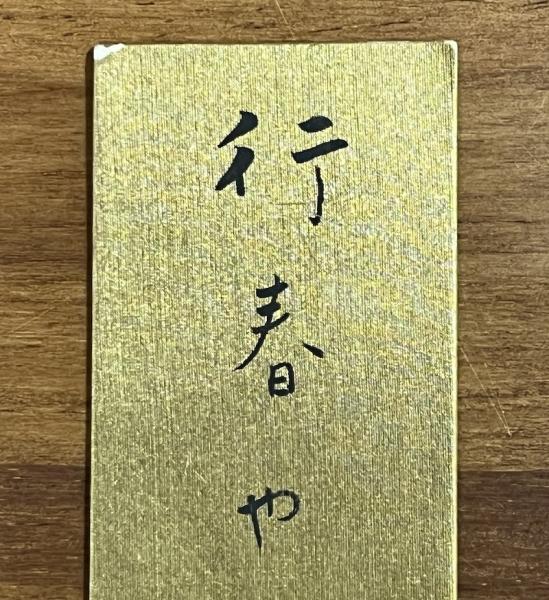 行春や